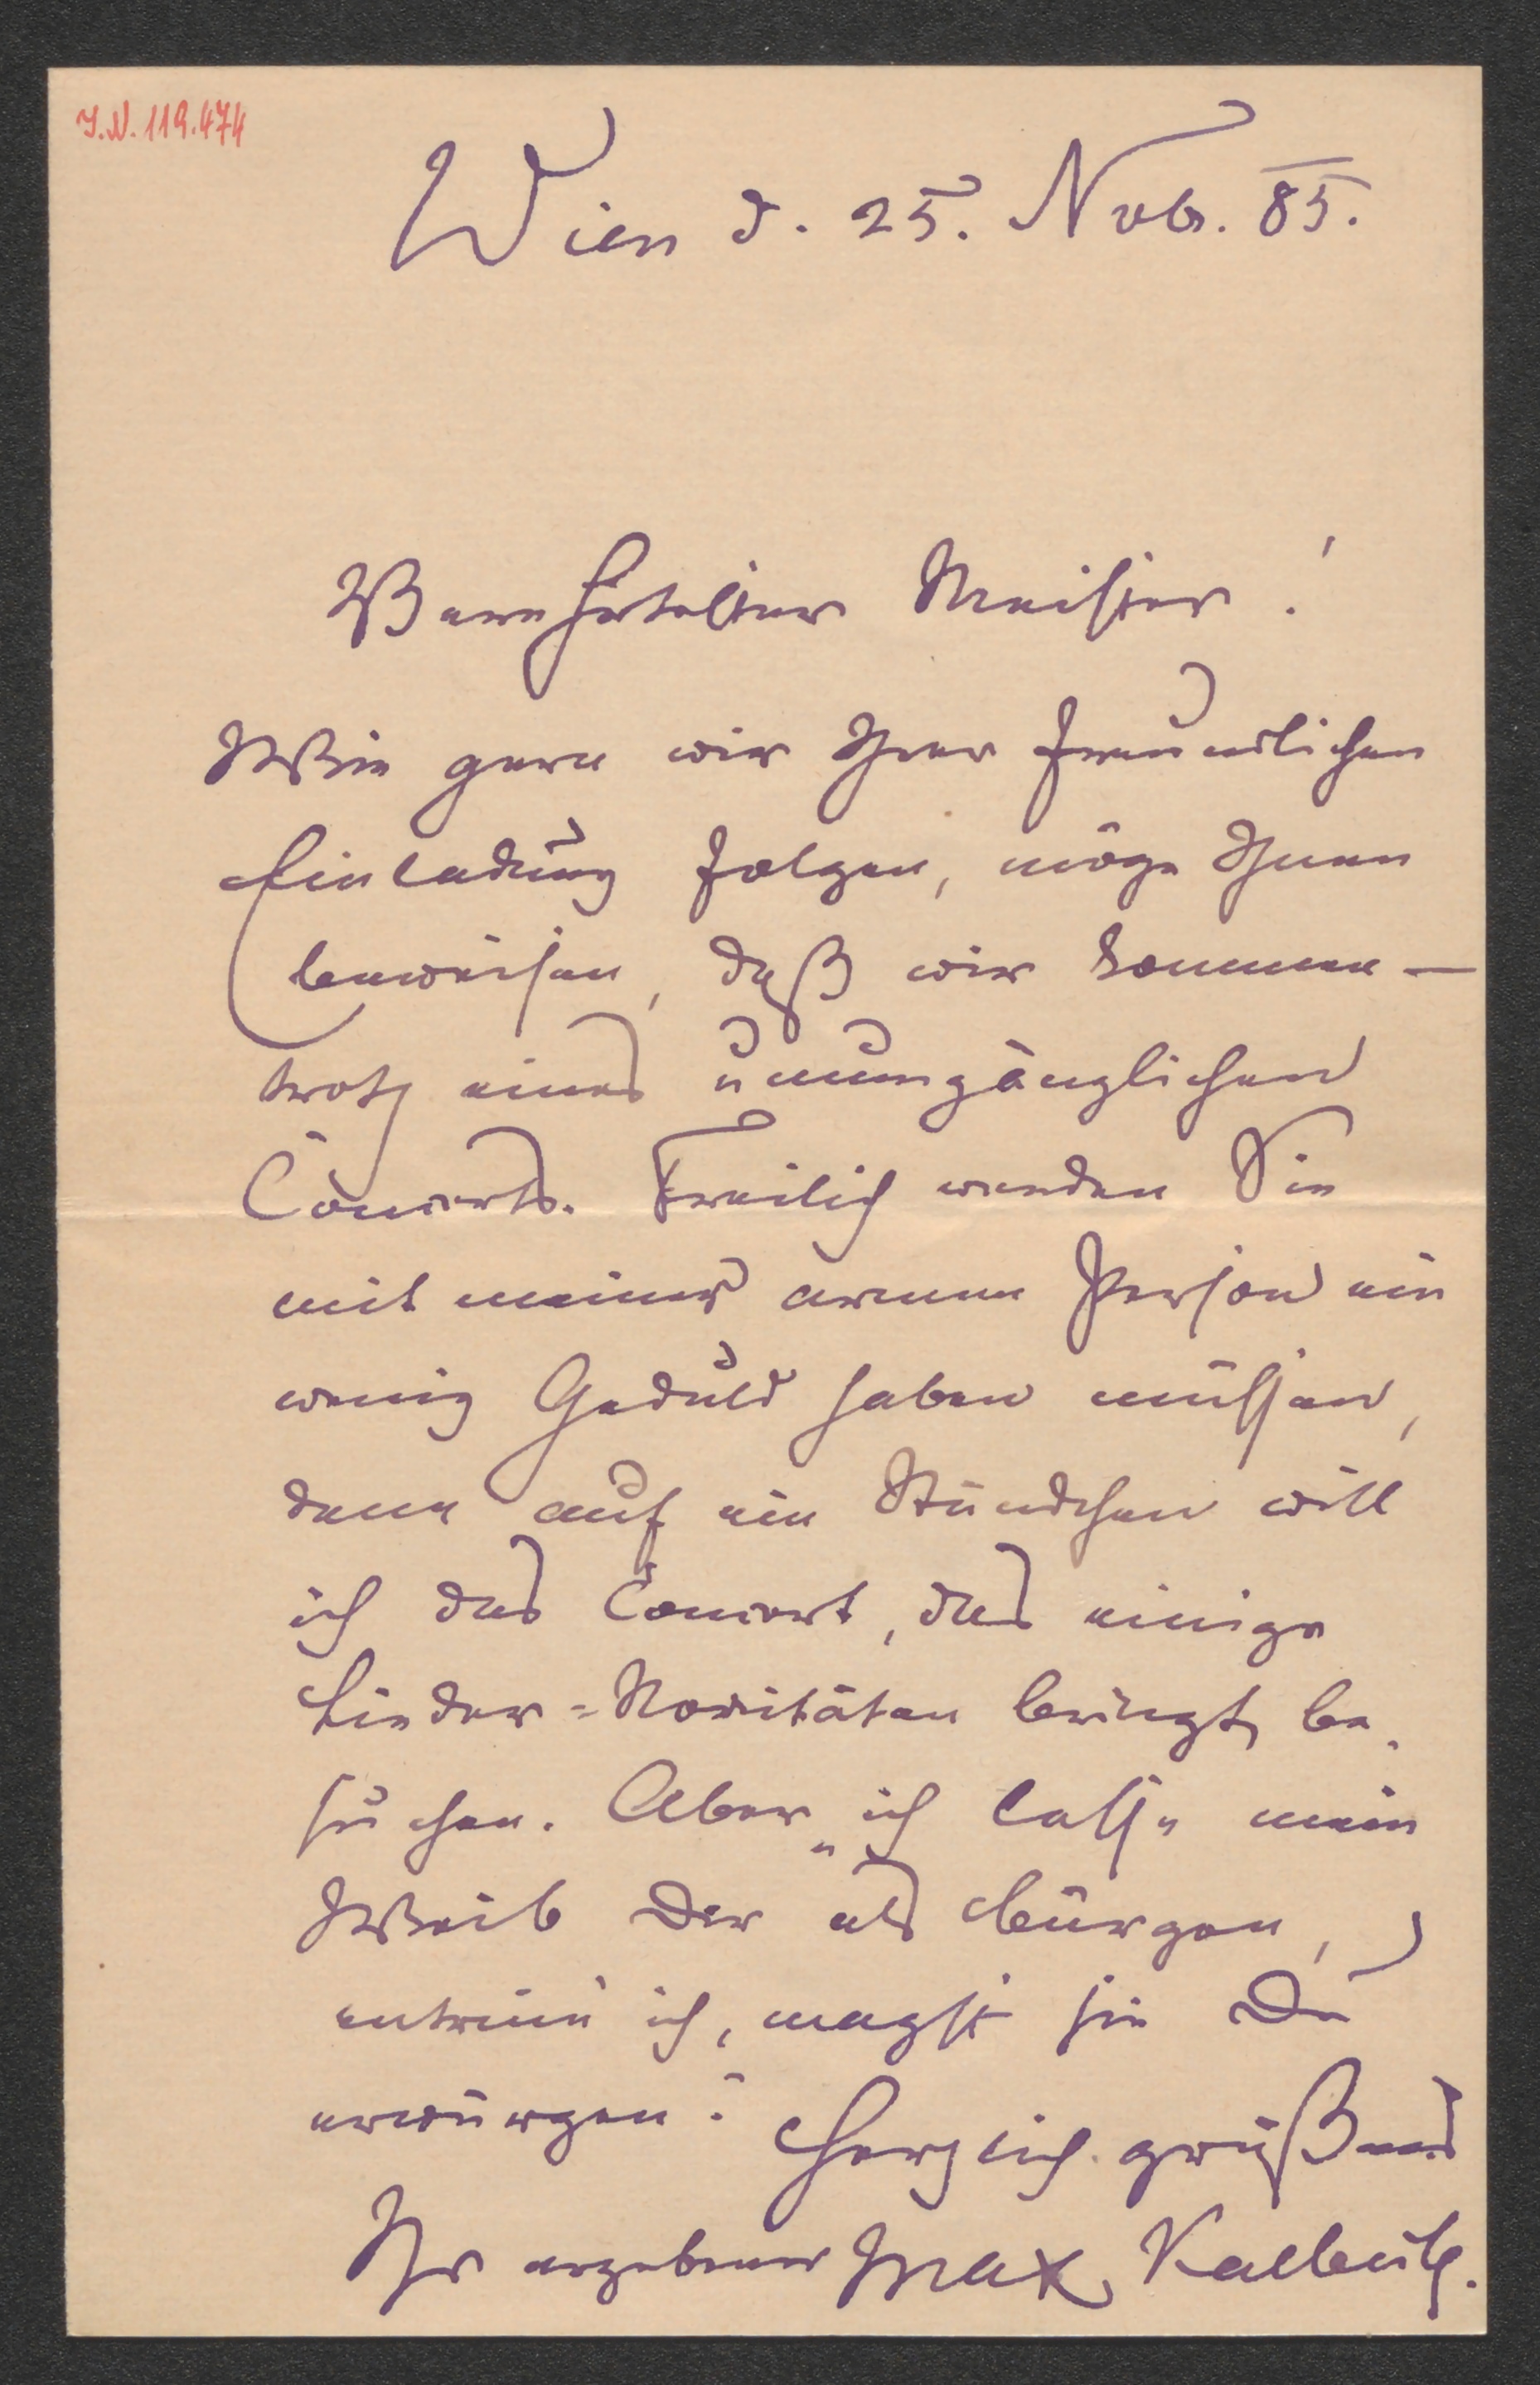 I.N. 119.474
Wien d. 25. Nvbr. 85.
Verehrtester Meister!
Wie gern wir Ihrer freundlichen
Einladung folgen, möge Ihnen
beweisen, daß wir kommen —
trotz eines unumgänglichen
Concerts. Freilich werden Sie
mit meiner armen Person ein
wenig Geduld haben müssen,
denn auf ein Stündchen will
ich das Concert, das einige
Lieder-Novitäten bringt, be-
suchen. Aber „ich lasse mein
Weib Der als Bürgen,
entrinn' ich, magst sie Du
erwürgen“. Herzlich grüßend
Ihr ergebener Max Kalbeck.